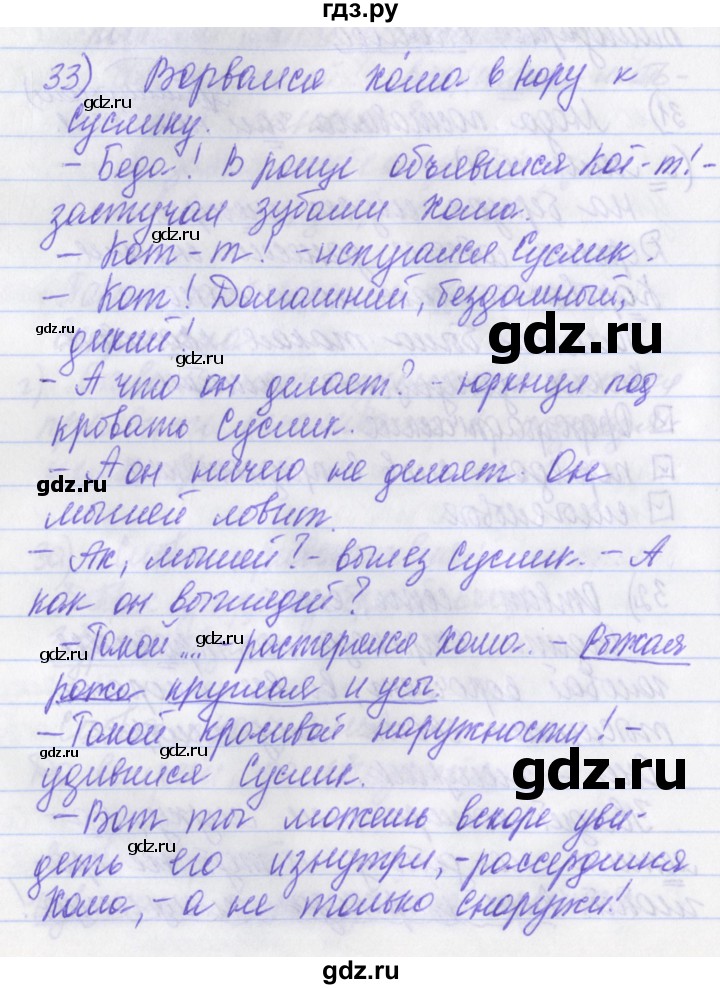 гдз.ру
33) Ворвался Хома в нору к
gdz.ru
Суслику.
gdz.ru
– Беда! В роще объявился Кот-т! –
застучал зубами Хома.
gdz.ru
– Кот-т! – испугался Суслик.
– Кот! Домашний, бездомный,
gdz.ru
дикий!
gdz.ru
– А что он делает? – юркнул под
кровать Суслик.
– А он ничего не делает. Он
gdz.ru
мышей ловит.
– Ак, мышей? – вылез Суслик. – А
как он выглядий?
gdz.ru
– Такой ... – растерялся Хома. – Рыжая
gdz.ru
рожа круглая и усы.
– Такой красивой наружности! –
gdz.ru
gdz.ru
удивился Суслик.
– Вот ты можешь вскоре уви-
gdz.ru
деть его изнутри, – рассердился
Хома, – а не только снаружи!
gdz.ru
gdz.ru